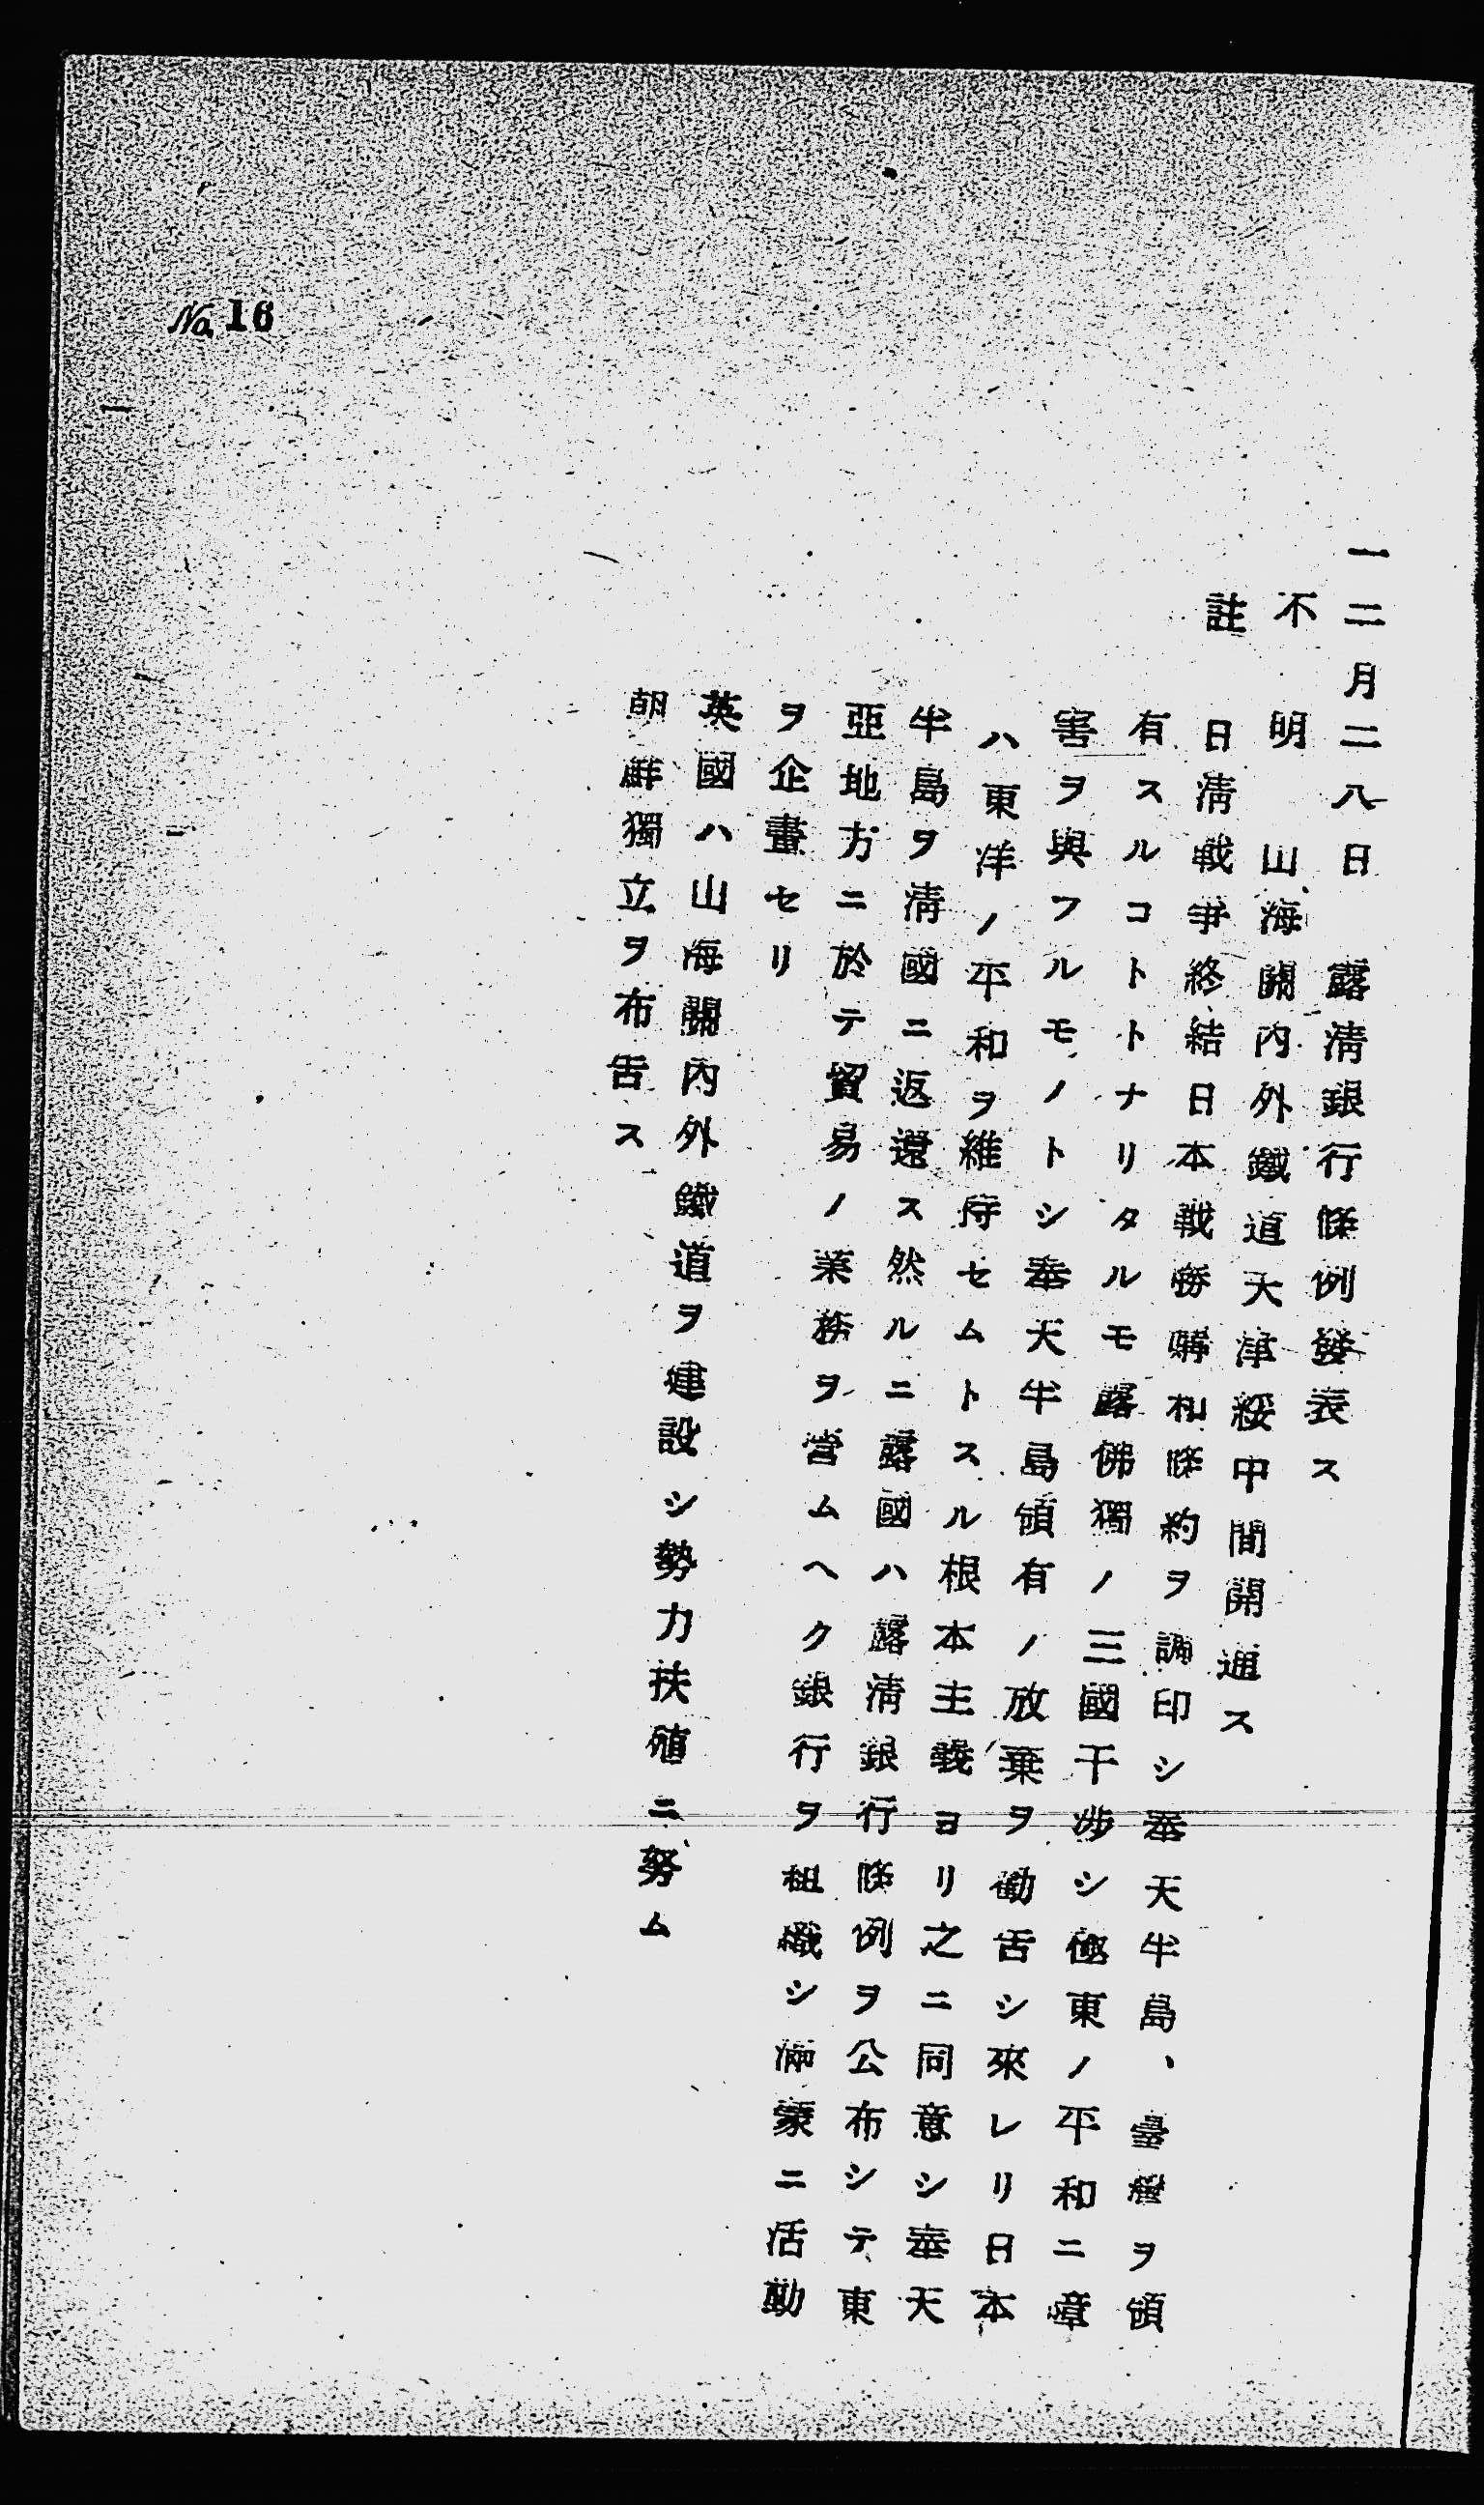 一二月二八日　露淸銀行條例發表ス
不　明　山海關內外鐵道天津綏中間開通ス
註　日淸戰爭終結日本戰勝媾和條約ヲ調印シ奉天半島、臺灣ヲ領
有スルコトトナリタルモ露佛獨ノ三國干渉シ極東ノ平和ニ障
害ヲ與フルモノトシ奉天半島領有ノ放棄ヲ勸告シ來レリ日本
ハ東洋ノ平和ヲ維持セムトスル根本主義ヨリ之ニ同意シ奉天
半島ヲ淸國ニ返還ス然ルニ露國ハ露淸銀行條例ヲ公布シテ東
亞地方ニ於テ貿易ノ業務ヲ營ムヘク銀行ヲ組織シ滿蒙ニ活動
ヲ企畫セリ
英國ハ山海關內外鐵道ヲ建設シ勢力扶殖ニ努ム
朝鮮獨立ヲ布告ス
No. 16